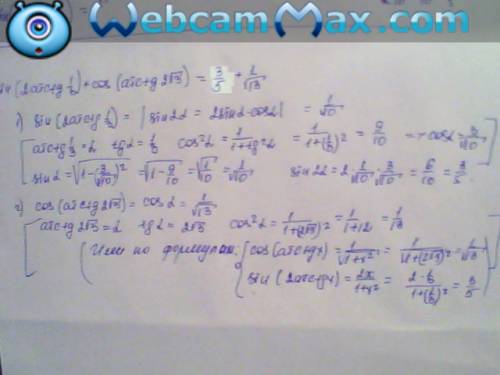 WebcamMax.com
sin(2arctg 1/3) + cos(arctg 2√3) = 3/5 + 1/√13
1) sin(2arctg 1/3) = |sin2α = 2sinα·cosα| = 1/√10
[ arctg 1/3 = α tgα = 1/3 cos²α = 1/(1+tg²α) = 1/(1+(1/3)²) = 9/10 => cosα = 3/√10 ]
sinα = √(1-(3/√10)²) = √(1-9/10) = √(1/10) = 1/√10 sin2α = 2·1/√10·3/√10 = 6/10 = 3/5
2) cos(arctg 2√3) = cosα = 1/√13
[ arctg 2√3 = α tgα = 2√3 cos²α = 1/(1+(2√3)²) = 1/(1+12) = 1/13
(Или по формулам: cos(arctgx) = 1/√(1+x²) = 1/√(1+(2√3)²) = 1/√13
sin(2arctgx) = 2x/(1+x²) = (2·1/3)/(1+(1/3)²) = 3/5